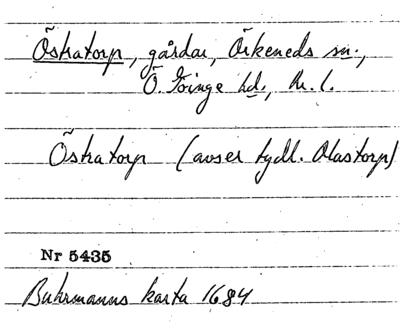 Östratorp, gårdar, Örkeneds sn.,
Ö. Göinge hd., Kr. l.
Östratorp (avser tydl. Olastorp)
Nr 5435
Buhrmanns karta 1684